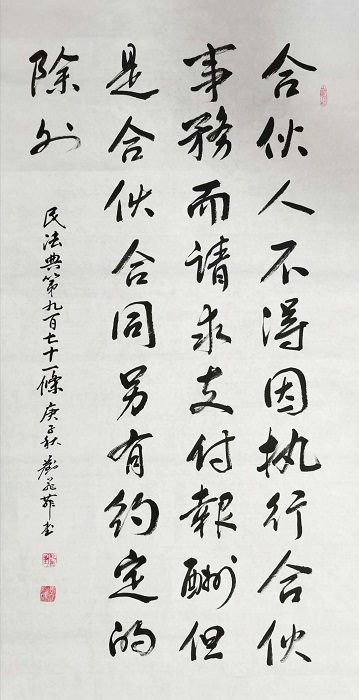 合伙人不得因执行合伙
事務而請求支付報酬但
是合伙合同另有约定的
除外
民法典第九百七十一條庚子秋